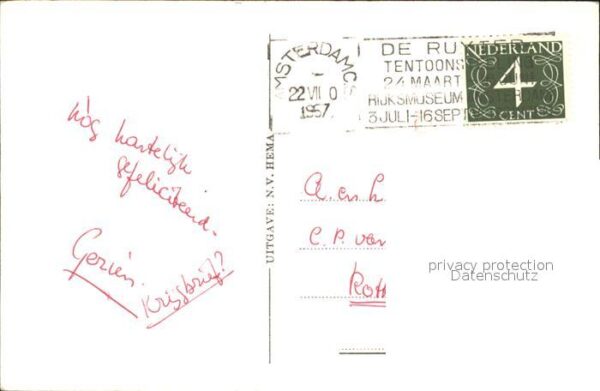 AMSTERDAM CS
22 VII 0
1957
DE RUYTER
TENTOONS
24 MAART
RIJKSMUSEUM
3 JULI-16 SEPT
NEDERLAND
4
CENT
nóg hartelijk
gefeliciteerd.
Gerien.
Krijgbrief?
UITGAVE: N.V. HEMA
C.P. van
privacy protection
Datenschutz